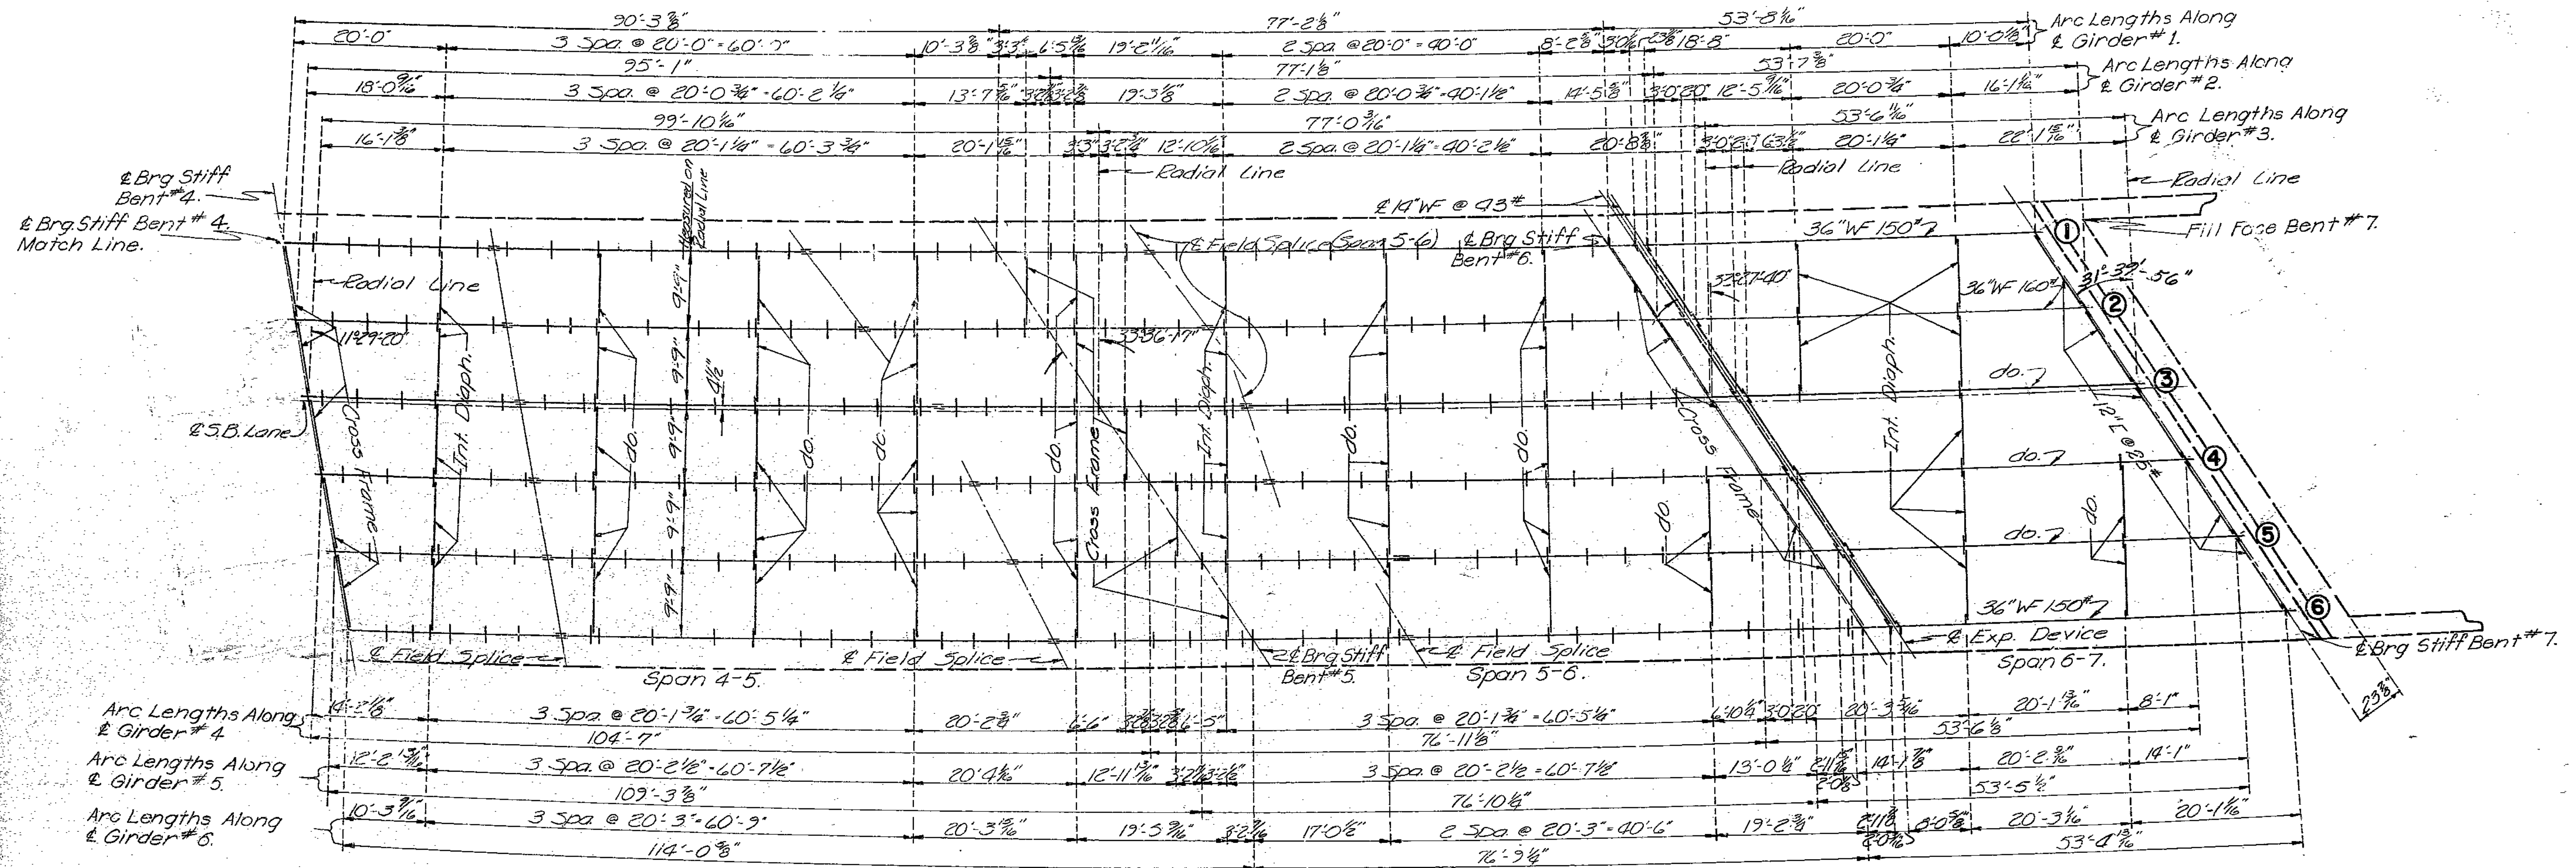 90'-3 7/8"
77'-2 1/8"
53'-8 1/16"
Arc Lengths Along
℄ Girder #1.
20'-0"
3 Spa. @ 20'-0" = 60'-0"
10'-3 7/8"
19'-2 11/16"
2 Spa. @ 20'-0" = 40'-0"
18'-8"
20'-0"
10'-0 1/8"
95'-1"
77'-1 1/8"
53'-7 3/8"
Arc Lengths Along
℄ Girder #2.
18'-0 9/16"
3 Spa. @ 20'-0 3/4" = 60'-2 1/4"
13'-7 5/16"
19'-3 1/8"
2 Spa. @ 20'-0 3/4" = 40'-1 1/2"
14'-5 5/8"
3'-0"
2'-0"
12'-5 9/16"
20'-0 3/4"
16'-1 1/16"
99'-10 1/16"
77'-0 3/16"
53'-6 11/16"
Arc Lengths Along
℄ Girder #3.
16'-1 3/8"
3 Spa. @ 20'-1 1/4" = 60'-3 3/4"
20'-1 15/16"
3'-3"
3'-2 3/4"
12'-10 1/16"
2 Spa. @ 20'-1 1/4" = 40'-2 1/2"
20'-8 3/8"
3'-0"
20'-1 1/4"
22'-1 15/16"
Radial Line
Radial Line
Radial Line
℄ Brg Stiff
Bent #4.
℄ Brg. Stiff Bent #4.
Match Line.
Measured on
Radial Line
℄ 14" WF @ 43#
℄ Field Splice (Span 5-6)
℄ Brg Stiff
Bent #6.
36" WF 150#
Fill Face Bent #7.
1
Radial Line
9'-9"
33°-27'-40"
36" WF 160#
31°-39'-56"
2
11°-29'-20"
9'-9"
4 1/2"
33°-36'-17"
Int. Diaph.
Int. Diaph.
Int. Diaph.
do.
3
℄ S.B. Lane
Cross Frame
do.
do.
do.
do.
Cross Frame
do.
do.
Cross Frame
Int. Diaph.
12" [ @ 25#
9'-9"
do.
4
do.
do.
5
do.
9'-9"
36" WF 150#
6
℄ Exp. Device
℄ Brg Stiff Bent #7.
℄ Field Splice
℄ Field Splice
℄ Brg Stiff
Bent #5.
℄ Field Splice
Span 4-5.
Span 5-6.
Span 6-7.
23 7/8"
Arc Lengths Along
℄ Girder #4
14'-2 1/8"
3 Spa. @ 20'-1 3/4" = 60'-5 1/4"
20'-2 3/8"
6'-6"
6'-5"
3 Spa. @ 20'-1 3/4" = 60'-5 1/4"
6'-10 1/4"
3'-0"
2'-0"
20'-3 5/16"
20'-1 13/16"
8'-1"
104'-7"
76'-11 1/8"
53'-6 1/8"
Arc Lengths Along
℄ Girder #5.
12'-2 15/16"
3 Spa. @ 20'-2 1/2" = 60'-7 1/2"
20'-4 1/16"
12'-11 13/16"
3 Spa. @ 20'-2 1/2 = 60'-7 1/2"
13'-0 1/8"
14'-1 7/8"
20'-2 9/16"
14'-1"
109'-3 7/8"
76'-10 1/4"
53'-5 1/2"
Arc Lengths Along
℄ Girder #6.
10'-3 9/16"
3 Spa. @ 20'-3" = 60'-9"
20'-3 15/16"
19'-5 9/16"
3'-2 7/16"
17'-0 1/2"
2 Spa. @ 20'-3" = 40'-6"
19'-2 3/4"
8'-0 5/8"
20'-3 1/16"
20'-1 1/16"
114'-0 5/8"
76'-9 1/4"
53'-4 13/16"